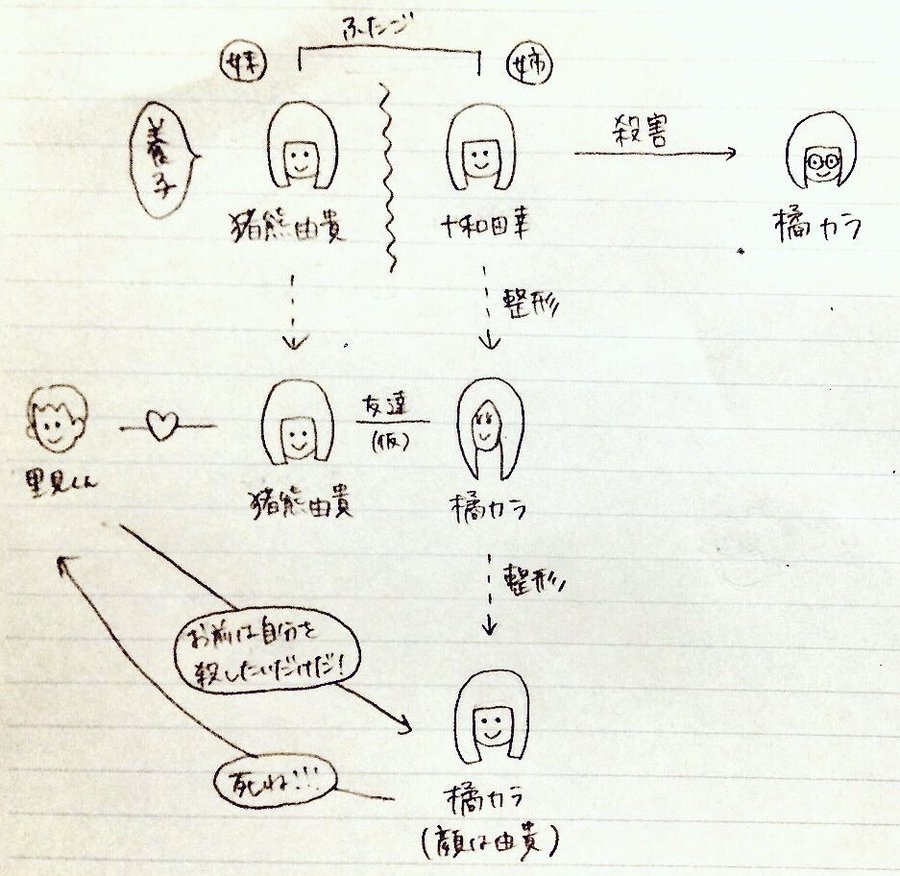 ふたご
妹
姉
養子
殺害
猪熊由貴
十和田幸
橘カラ
整形
友達
(仮)
里見くん
猪熊由貴
橘カラ
整形
お前は自分を
殺したいだけだ!
死ね!!!
橘カラ
(顔は由貴)